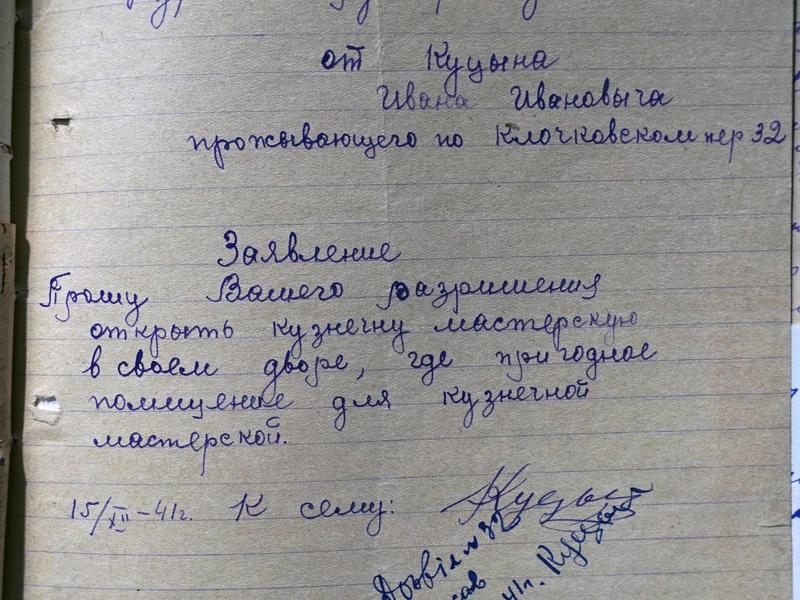 от Куцына
Ивана Ивановыча
прожывающего по Клочковском пер 32
Заявление
Прошу Вашего разришения
открыть кузнечну мастерскую
в своем дворе, где пригодное
помищение для кузнечной
мастерской.
15/XII-41г. К сему: Куцын
Доввід № 32
41п. Куцын